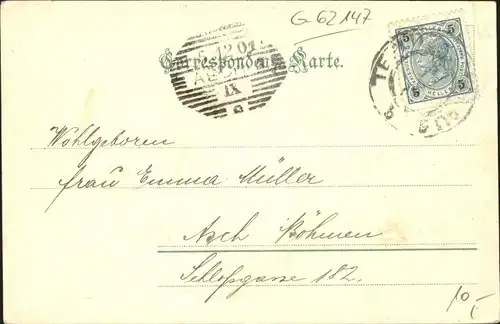 G 62147
Correspondenz-Karte.
5 5
5 HELLER 5
IX
Wohlgeboren
Frau Emma Müller
Asch Böhmen
Schloßgasse 182.
10,-